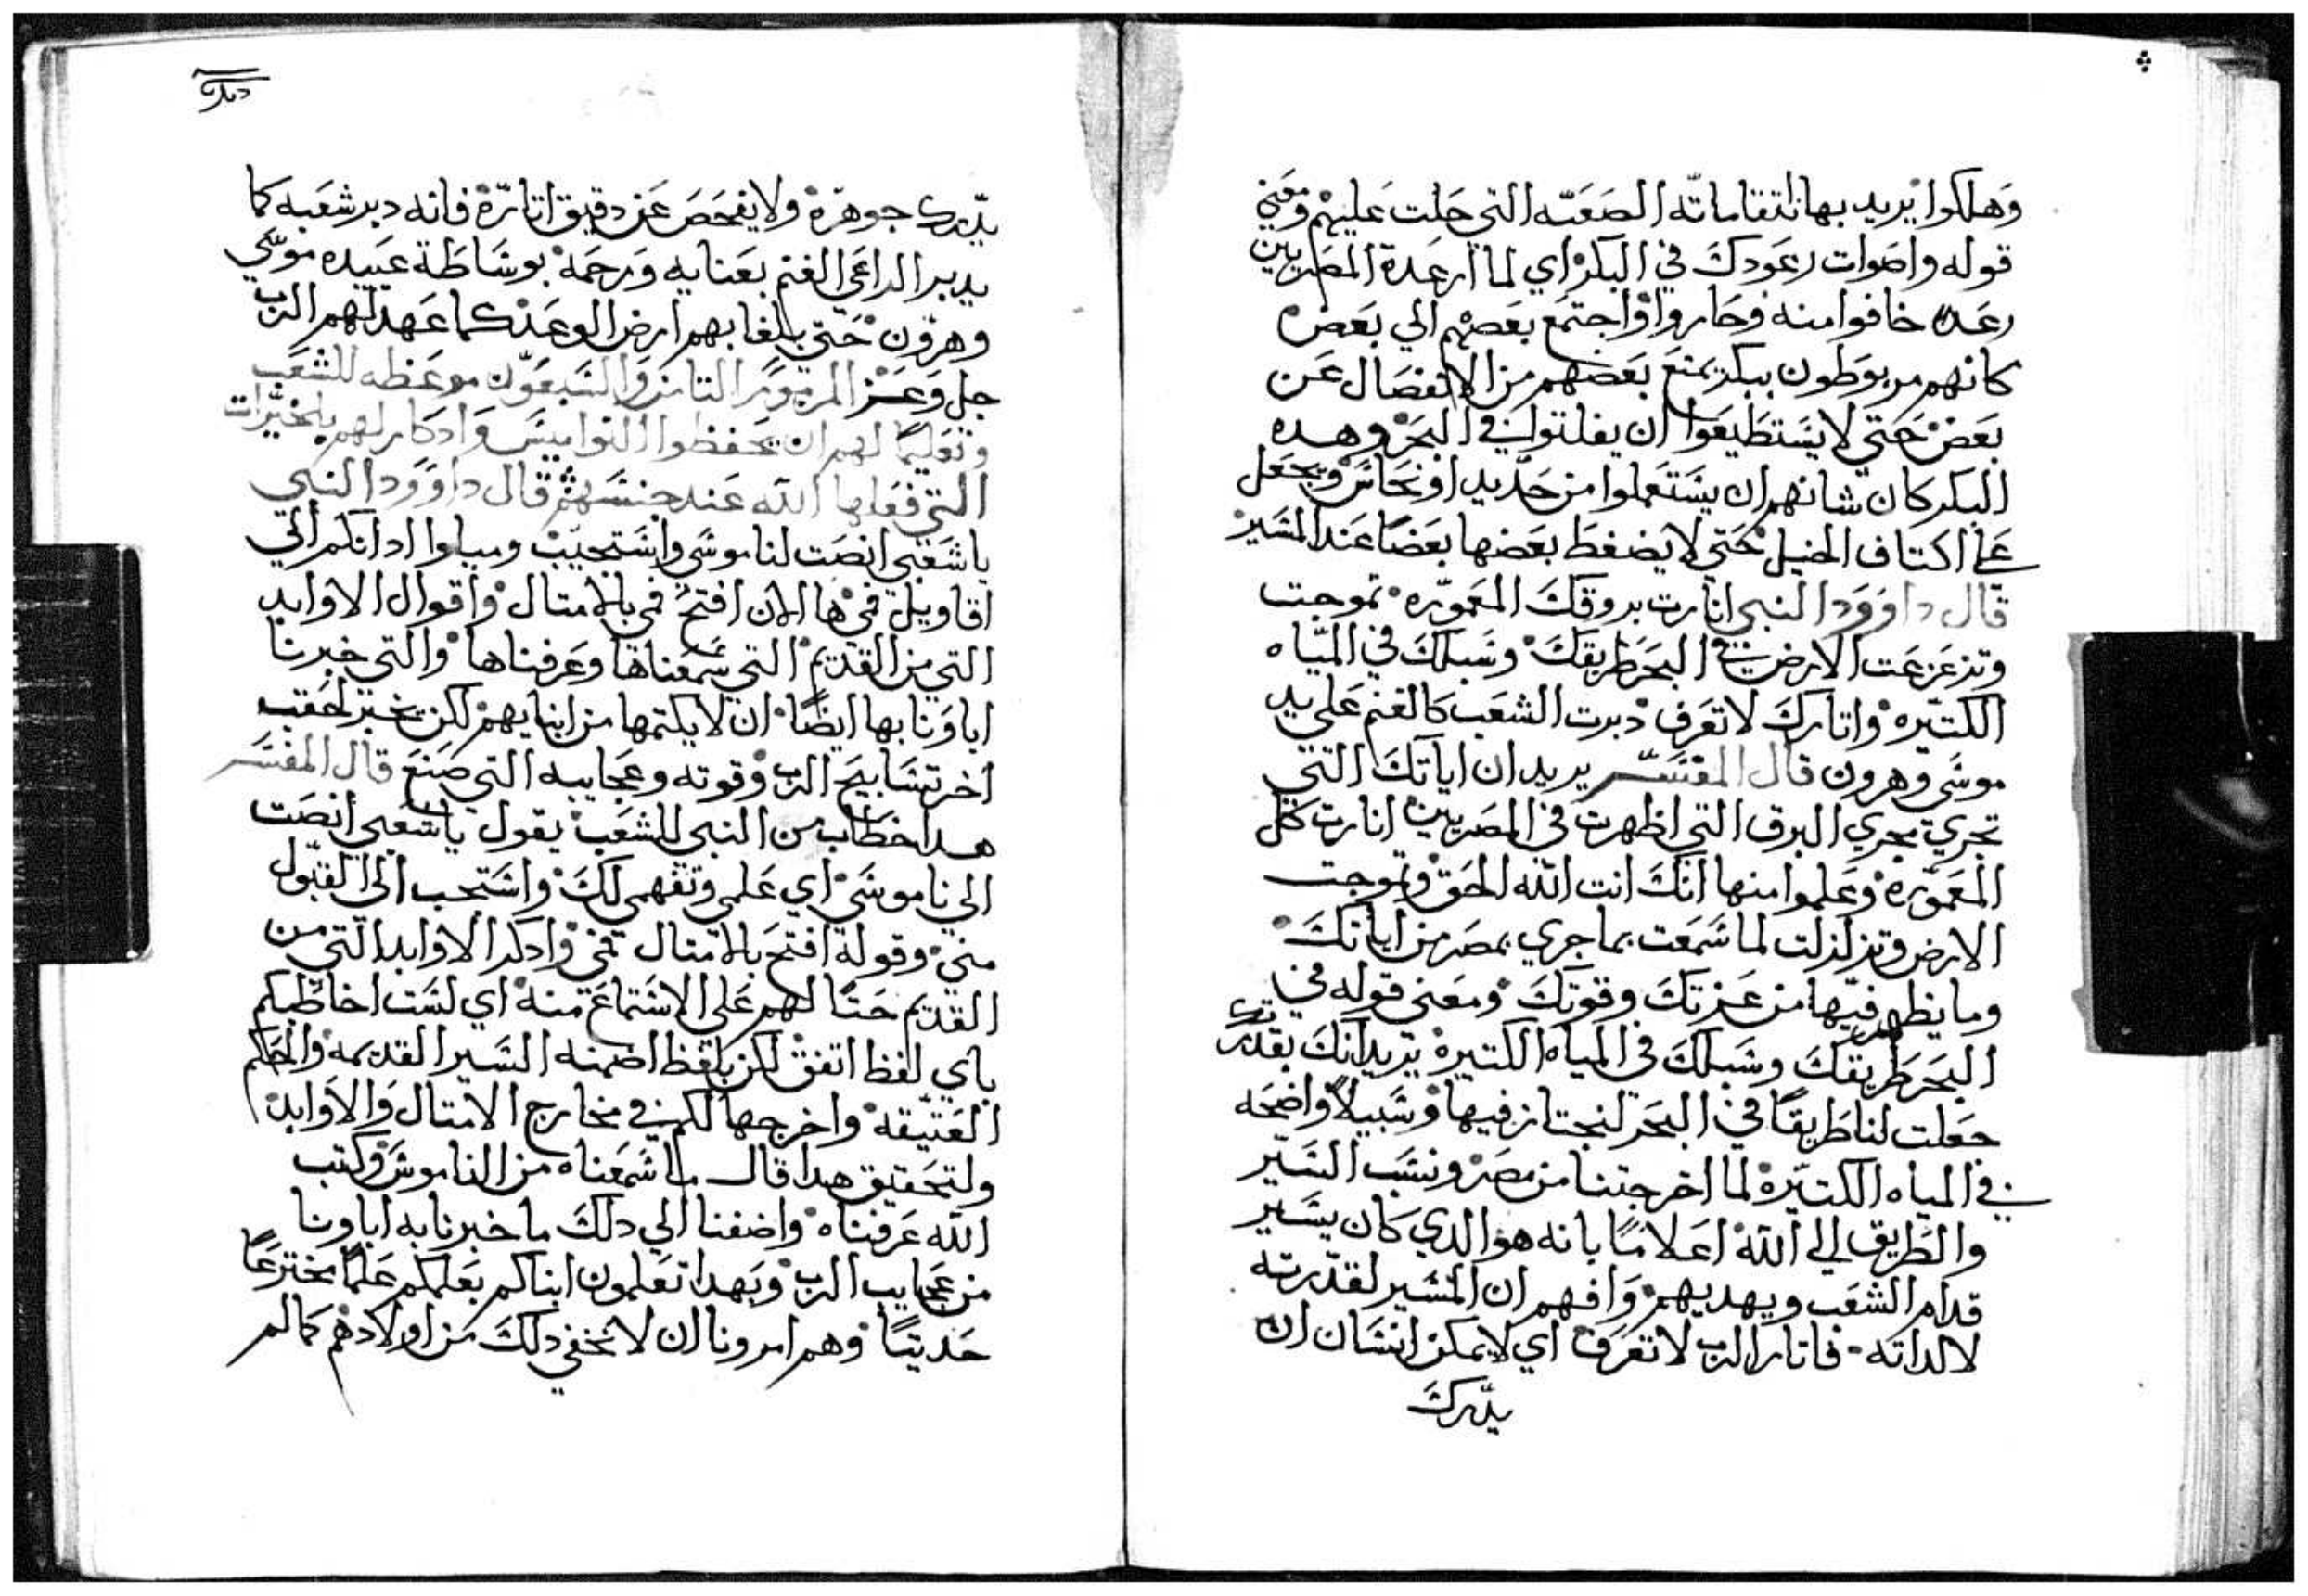 وهلكوا يريد بها انتقاماته الصعبه التي حلت عليهم ومعني
قوله واصوات رعودك في البكر اي لما ارعدة المصريين
رعده خافوا منه وحاروا واجتمع بعضهم الي بعض
كانهم مربوطون ببكر يمنع بعضهم من الانفصال عن
بعض حتي لا يستطيعوا ان يفلتوا في البحر وهده
البكر كان شانهم ان يستعملوا من حديد او نحاس ويجعل
علي اكتاف الخيل حتي لا يضغط بعضها بعضًا عند المسير
قال داوود النبي انارت بروقك المعموره تموجت
وتزعزعت الارض في البحر طريقك وسبلك في المياه
الكتيره واتارك لا تعرف دبرت الشعب كالغنم علي يد
موسي وهرون قال المفسر يريد ان اياتك التي
تجري مجري البرق التي اظهرت في المصريين انارت كل
المعموره وعلموا منها انك انت الله الحق وتموجت
الارض وتزلزلت لما سمعت بما جري بمصر من اياتك
وما يظهر فيها من عزتك وقوتك ومعني قوله في
البحر طريقك وسبلك في المياه الكتيرة يريد انك بقدرتك
جعلت لنا طريقًا في البحر لنجتاز فيها وسبيلاً واضحه
في المياه الكتيرة لما اخرجتنا من مصر ونسب السير
والطريق الي الله اعلامًا بانه هو الدي كان يسير
قدام الشعب ويهديهم وافهم ان المسير لقدرته
لا لداته فاتار الرب لا تعرف اي لا يمكن انسان ان
يدرك
يدرك جوهرة ولا يفحص عن دقيق اتارة فانه دبر شعبه كما
يدبر الراعي الغنم بعنايه ورحمة بوساطة عبيده موسي
وهرون حتي بلغا بهم ارض الوعد كما عهد لهم الرب
جل وعز المزمور التامن والسبعون موعظه للشعب
وتعليمًا لهم ان يحفظوا النواميس وادكار لهم بالخيرات
التي فعلها الله عند جنسهم قال داوود النبي
يا شعبي انصت لناموسي واستجيب وميلوا ادانكم الي
اقاويل فمي ها الان افتح فمي بالامتال واقوال الاوابد
التي من القديم التي سمعناها وعرفناها والتي خبرنا
اباونا بها ايضًا ان لا يكتمها من ابنايهم لكن تخبر لحقب
اخر تسابيح الرب وقوته وعجايبه التي صنع قال المفسر
هدا خطاب من النبي للشعب يقول يا شعبي انصت
الي ناموسي اي علمي وتفهمي لك واستجب الي القبول
مني وقوله افتح بالامتال فمي وادكر الاوابد التي من
القديم حتًا لهم علي الاستماع منه اي لست اخاطبكم
باي لفظ اتفق لكن بلفظ اضمنه السير القديمه والحكم
العتيقه واخرجها لكم في مخارج الامتال والاوابد
ولتحقيق هدا قال ما سمعناه من الناموس وكتب
الله عرفناه واضفنا الي دلك ما خبرنا به اباونا
من عجايب الرب وبهدا تعلمون ابناكم بعلمكم علمًا مخترعًا
حديتًا وهم امرونا ان لا نخفي دلك من اولادهم كما لم